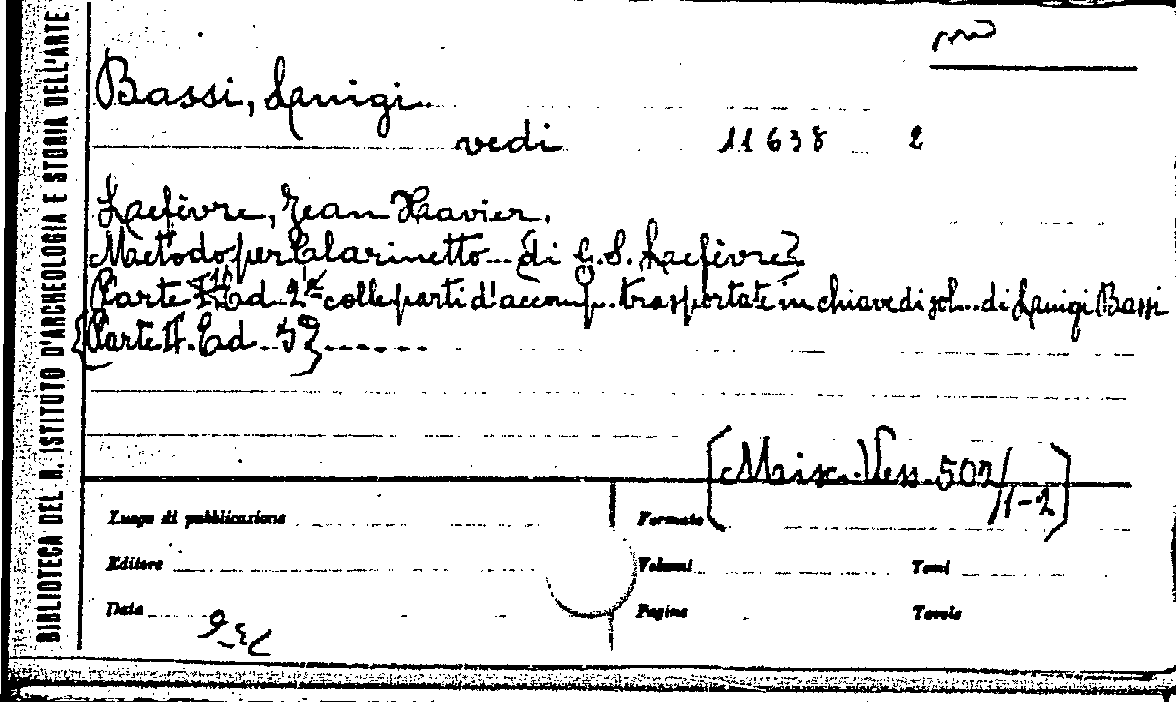 BIBLIOTECA DEL R. ISTITUTO D'ARCHEOLOGIA E STORIA DELL'ARTE
Bassi, Luigi
vedi 11638 2
Lefèvre, Jean Xavier.
Metodo per Clarinetto di G. S. Lefèvre
Parte Ed. 2ª colle parti d'accomp. trasportate in chiave di sol... di Luigi Bassi
Parte II. Ed. 3ª ......
[Misc. Vess. 502/1-2]
Luogo di pubblicazione Formato
Editore Volumi Tomi
Data Pagine Tavole